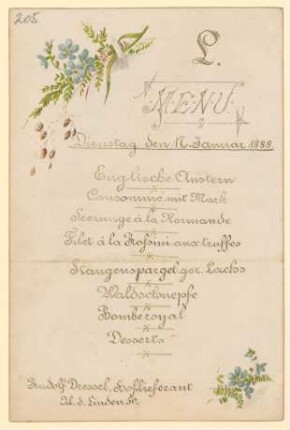 205
L.
MENU
Dienstag den 17. Januar 1888.
Englische Austern
Consommé mit Mark
Seezunge à la Normande
Filet à la Rossini aux truffes
Stangenspargel ger. Lachs
Waldschnepfe
Bombe royal
Desserts
Rudolf Dressel, Hoflieferant
U. d. Linden 50.